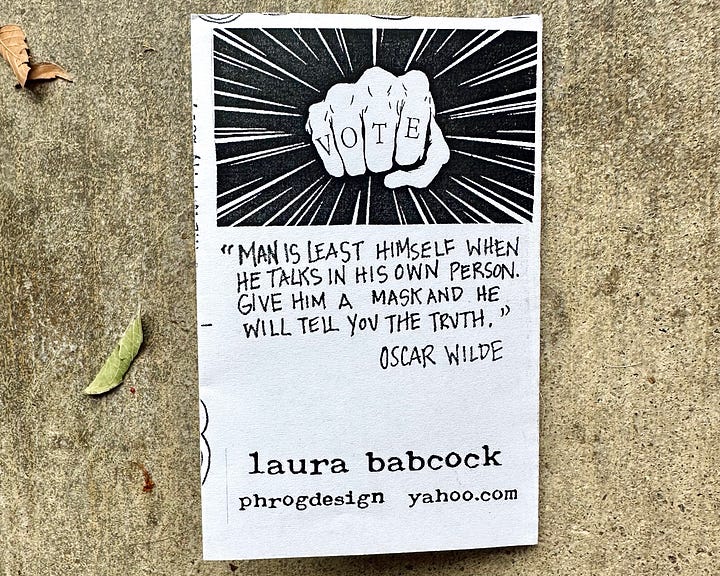 VOTE
“MAN IS LEAST HIMSELF WHEN
HE TALKS IN HIS OWN PERSON.
GIVE HIM A MASK AND HE
WILL TELL YOU THE TRUTH.”
OSCAR WILDE
laura babcock
phrogdesign yahoo.com